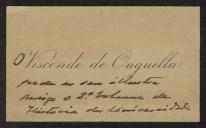 O Visconde de Ouguella
pede a seu illustre
amigo o 2º volume da
Historia da Universidade